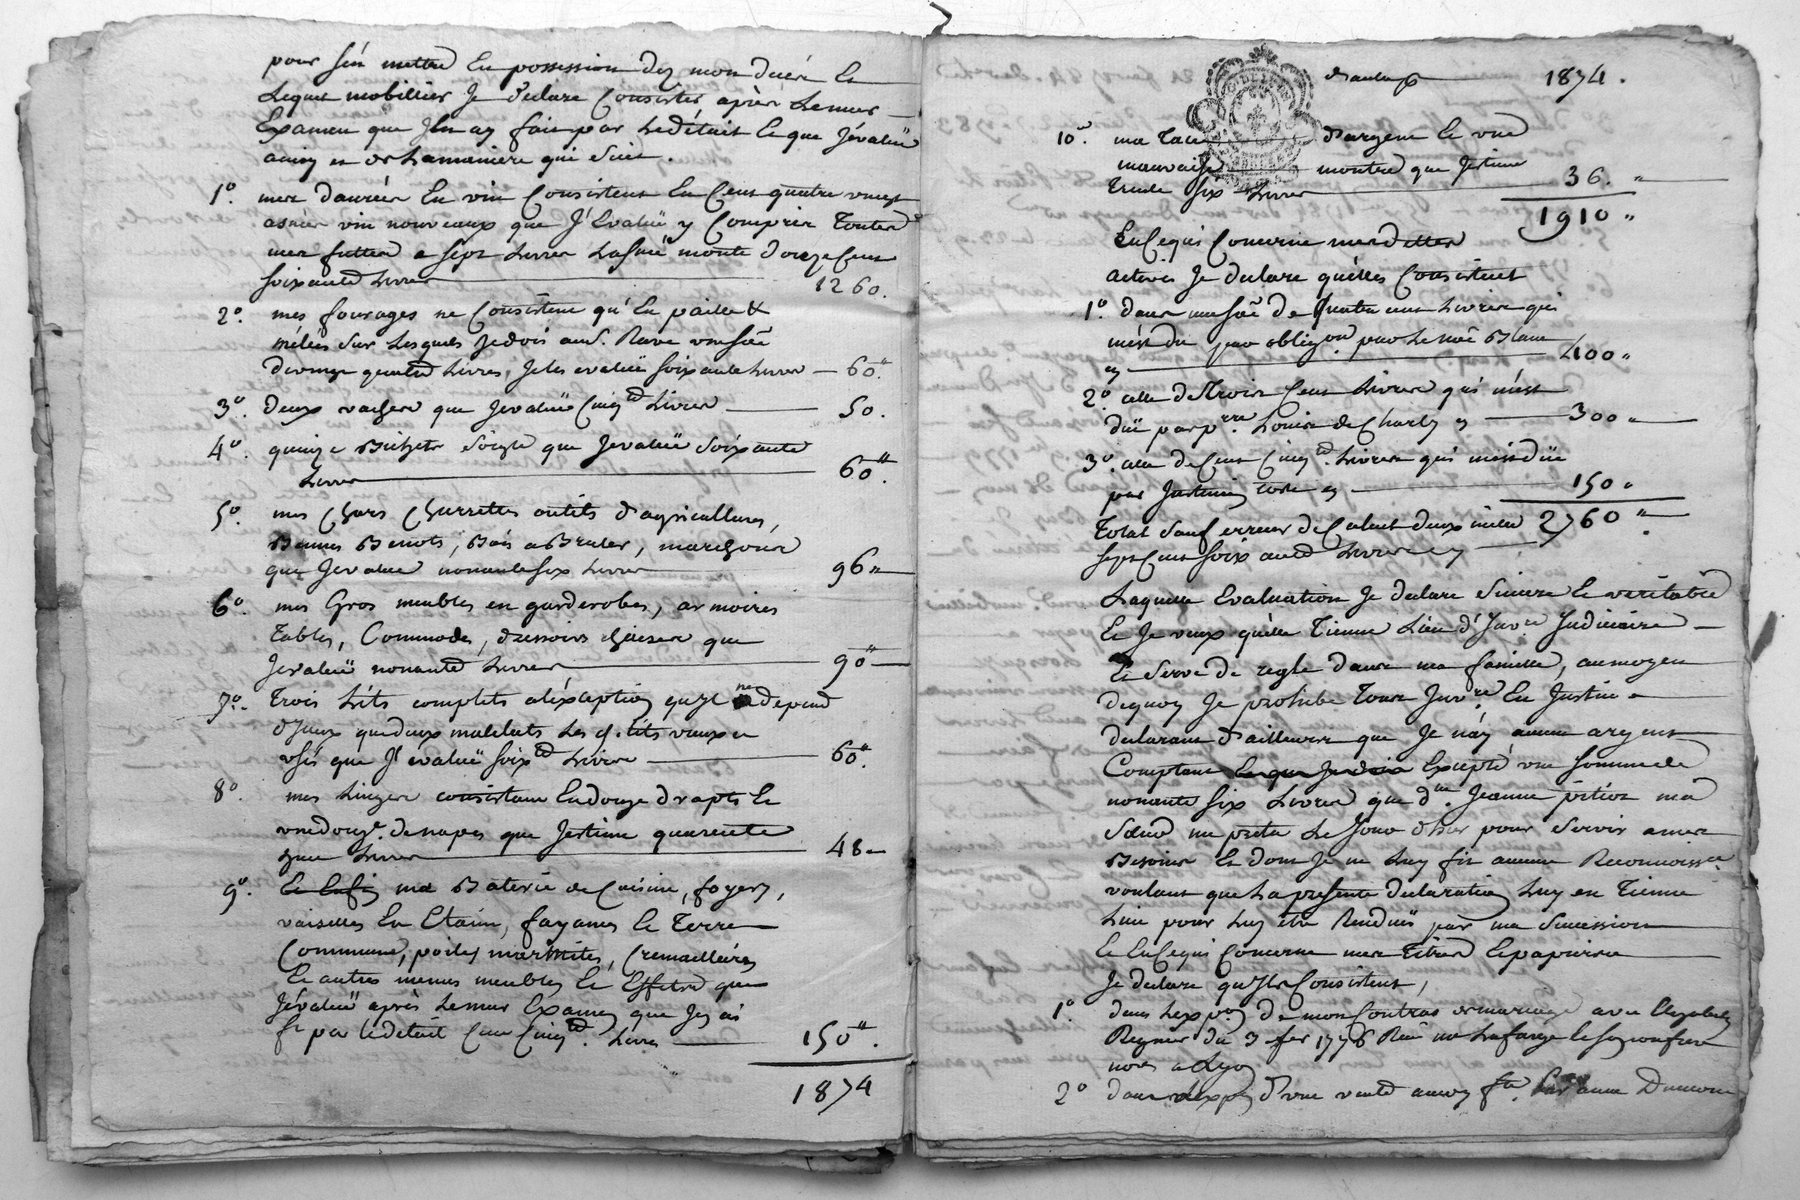 pour s'en mettre En possession dez mon decés Le
Lequel mobillier Je declare Consister après Le meur
Examen que J'En ay fait par Le détail Ce que J'évalüe
ainsy et de La maniere qui suit.
1º. mes danrées En vin Consistent En Cent quatre vingt
asnées vin nouveaux que J'Evalüe y Compris Toutes
mes futtes a sept Livres L'asnée monte douze Cent
soixante Livres 1260.
2º. mes fourages ne Consistent qu'En paille &
mélées sur Lesquels Je dois au S. Rave
quatre Livres, Je les evalüe soixante Livres 60".
3º. deux vaches que J'evalüe Cinq.te Livres 50.
4º. quinze Bichets soigle que J'evalüe soixante
Livres 60".
5º. mes Chars Charrettes outils d'agricultures,
Bennes Benots, Bois a Bruler, marchoir
que J'evalue nonante six Livres 96"
6º. mes Gros meubles en garderobes, armoires
Tables, Commodes, dressoirs chaises que
J'evalüe nonante Livres 90"
7º. Trois Lits complets a l'exception qu'il ne depend
d'Iceux que deux matelats Les d. lits vieux et
usés que J'evalüe soix.te Livres 60".
8º. mes Linges consistant En douze draps Et
une douz.e de napes que J'estime quarente
huit Livres 48"
9º. Et Enfin ma Baterie de Cuisine, foyers,
vaiselles En Etain, fayance Et Terre
Commune, poiles marmites, Cremailléres
Et autres menus meubles Et Effets que
J'évalüe après Le meur Examen que J'ay ai
f.t par Le detail Cent Cinq.te Livres 150".
1874
d'autre part 1874.
10º. ma Tasse d'argent Et une
mauvaise montre que J'estime
Trente six Livres 36. "
1910 "
En Ce qui Concerne mes dettes
actives Je declare qu'elles Consistent
1º. dans une so.e de Quatre cent Livres qui
m'est due par obligaon par Le né Blanc
cy 400 "
2º. celle de Trois Cent Livres qui m'est
düe par p.rre Louis de Charly cy 300 "
3º. celle de Cent Cinq.te Livres qui m'est düe
par cy 150 "
Total sauf erreur de Calcul deux mille 2760 ".
sept Cent soixante Livres cy
Laquelle Evaluation Je declare sincere Et veritable
Et Je veux qu'elle Tienne Lieu d'Inv.re Judiciaire
Et serve de regle dans ma famille, au moyen
de quoy Je prohibe Tous Inv.re En Justice
declarant d'ailleurs que Je n'ay aucun argent
Comptant Excepté une somme de
nonante six Livres que d.lle Jeanne ma
sœur me preta Le Jour d'hier pour servir a mes
Besoins Et dont Je ne Luy fis aucune Reconnoiss.ce
voulant que La presente declaration Luy en Tienne
Lieu pour Luy être Rendüe par ma succession
Et En Ce qui Concerne mes Titres Et papiers
Je declare qu'Ils Consistent,
1º. dans L'expon de mon Contrat de mariage avec Elizabeth
Regnier du 3 fer 1776 Reçu me Lafarge Et son confrere
nores a Lyon
2º dans L'expon d'une vente a moy f.te Par anne